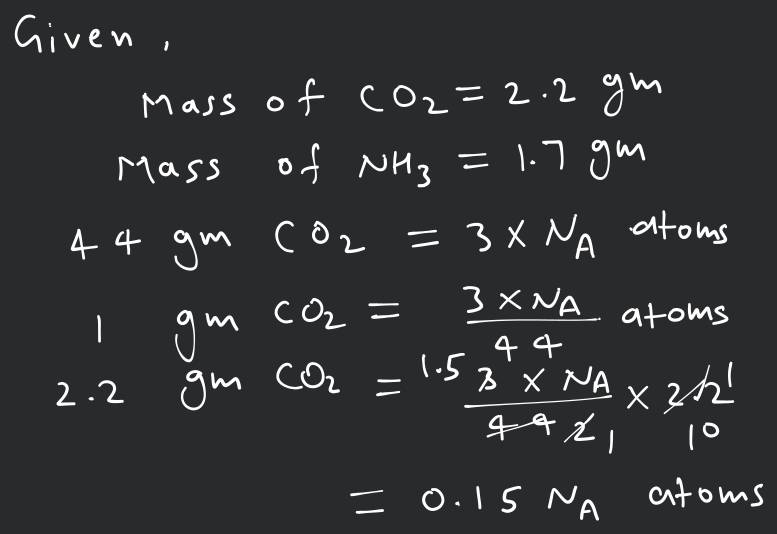 Given,
Mass of CO₂ = 2.2 gm
Mass of NH₃ = 1.7 gm
44 gm CO₂ = 3 × N_A atoms
1 gm CO₂ = (3 × N_A)/44 atoms
2.2 gm CO₂ = 1.5 (3 × N_A)/(44 2 1) × 22 1/10
= 0.15 N_A atoms